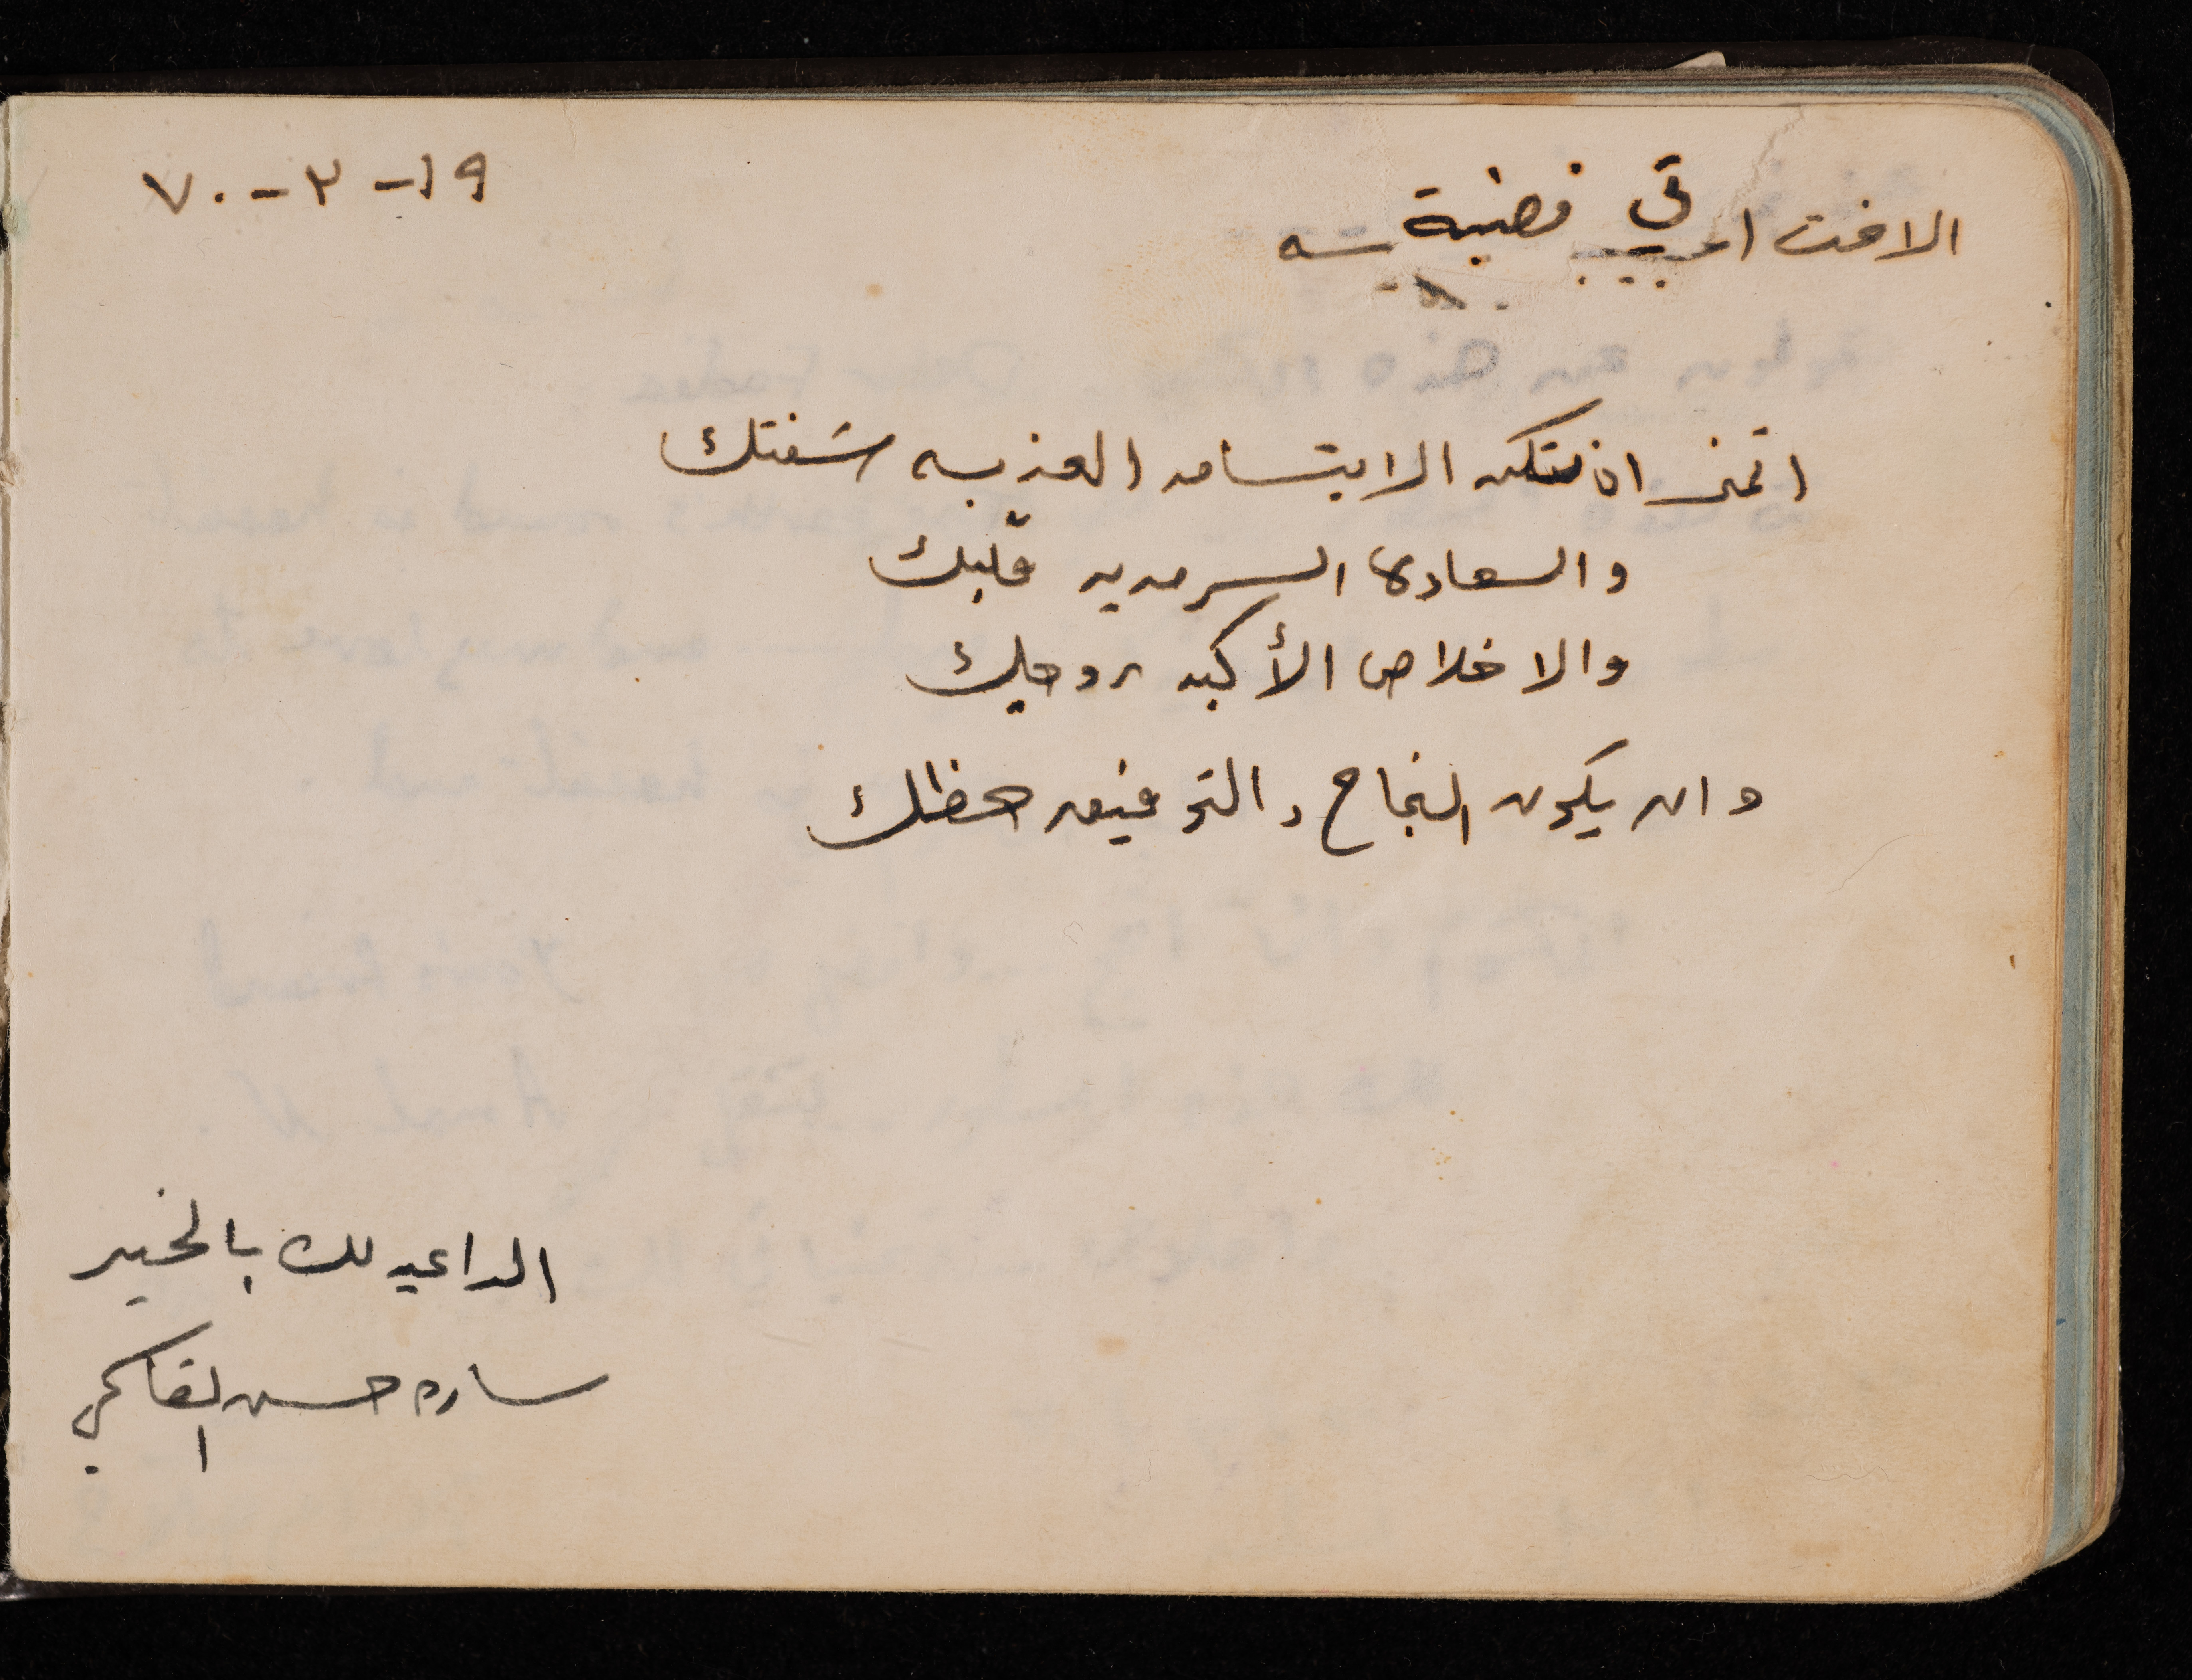 ١٩-٣-٧٠
الاخت
اتمنى ان تسكن الابتسامه العذبه شفتك
والسعاده السرمديه قلبك
والاخلاص الأكبد روحك
وان يكون النجاح والتوفيق حظك
الداعيه لك بالخير
ساره حسن